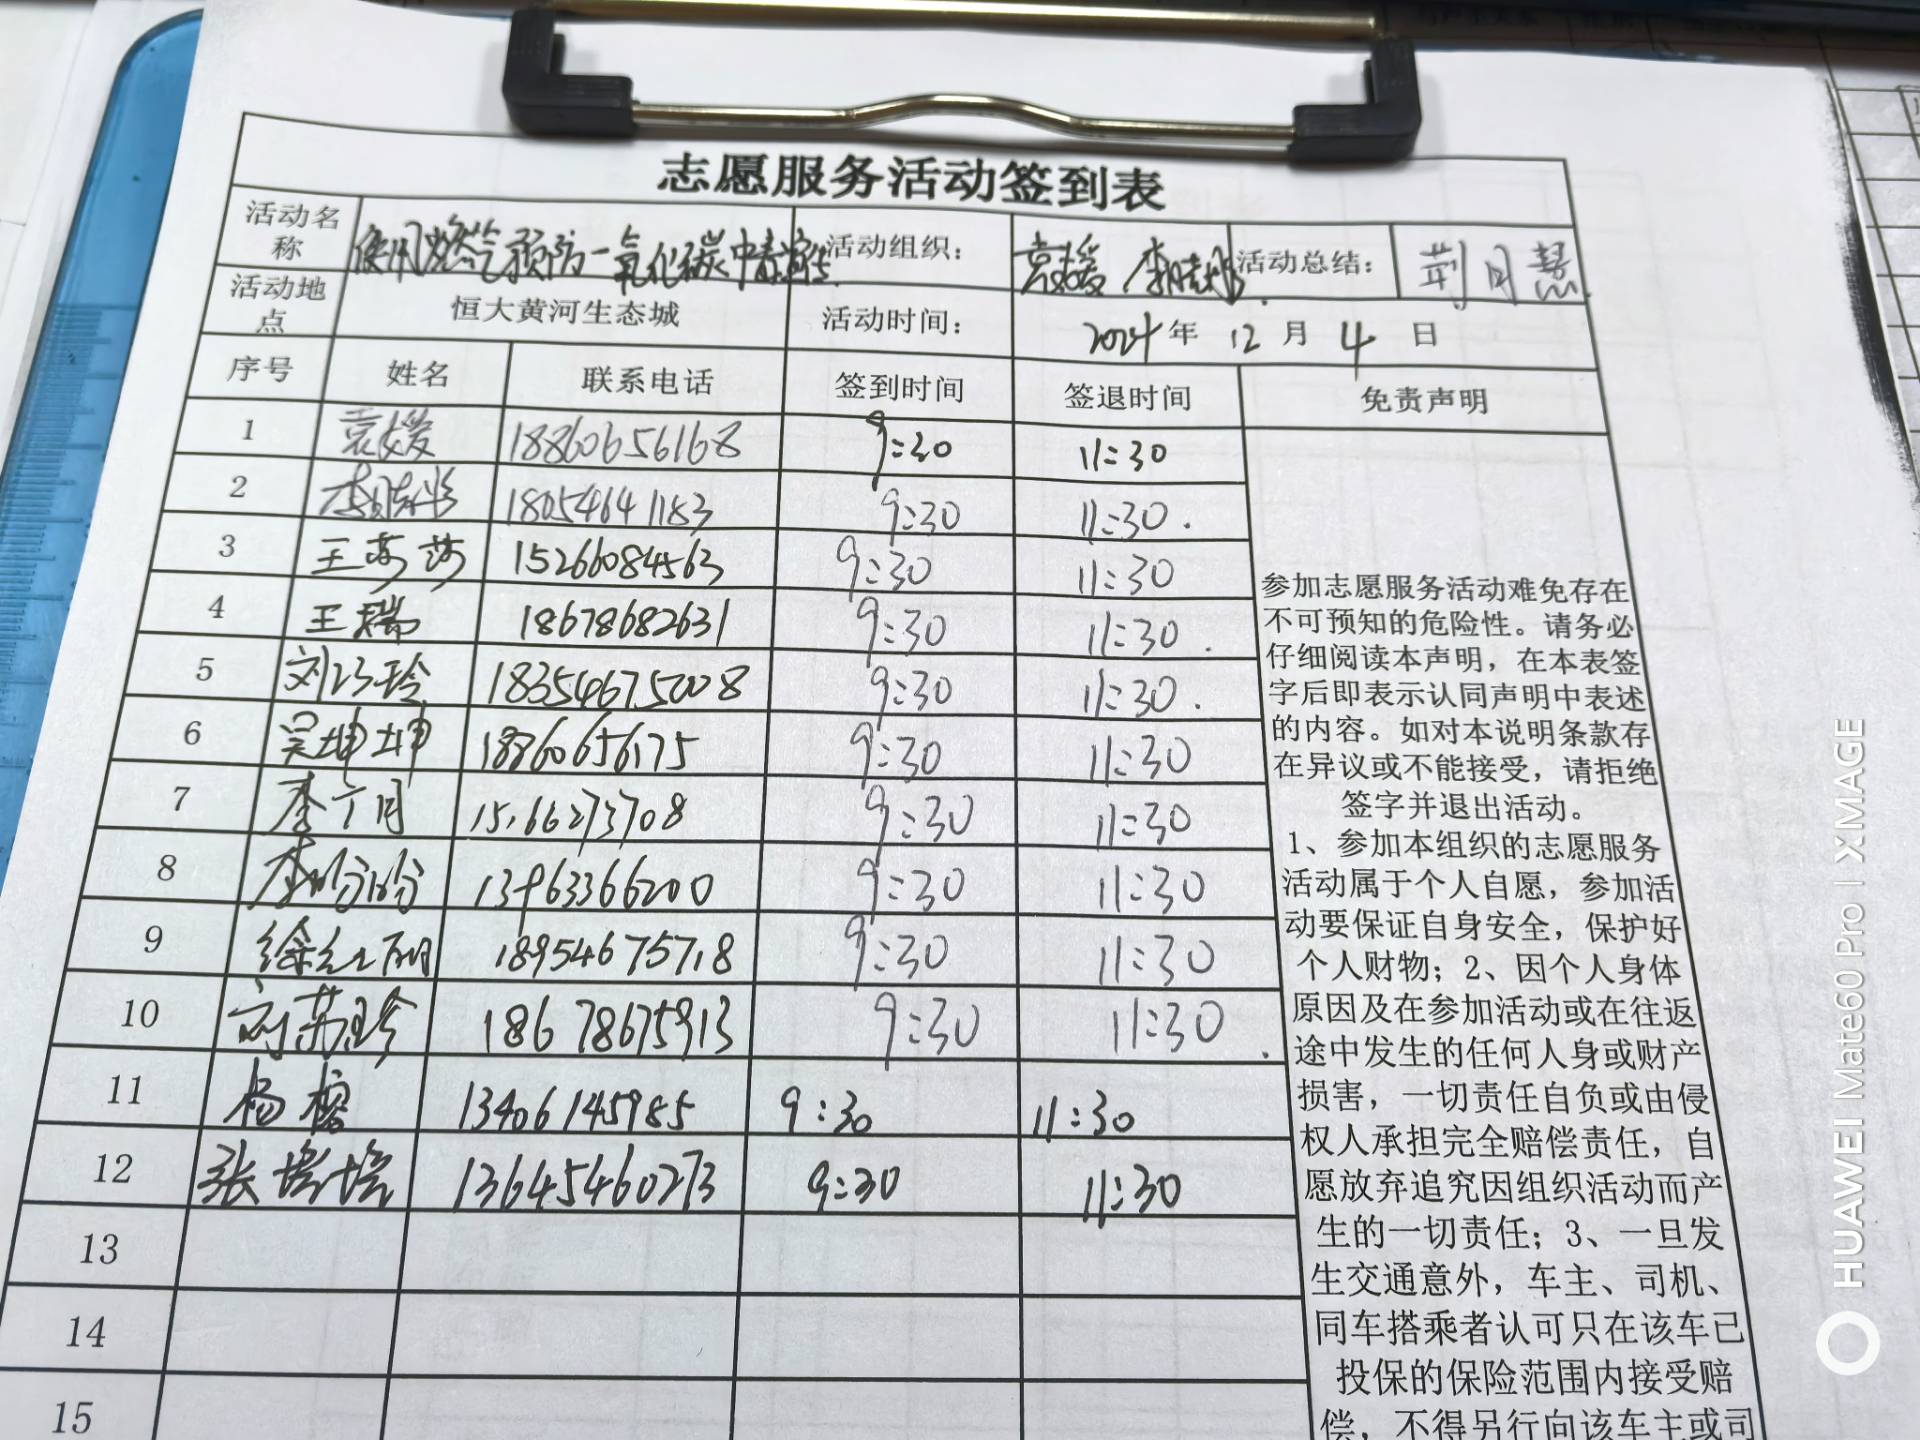 志愿服务活动签到表
活动名称 使用燃气预防一氧化碳中毒宣传 活动组织： 袁媛 李晓彤 活动总结： 荆月慧
活动地点 恒大黄河生态城 活动时间： 2024年 12月 4日
序号 姓名 联系电话 签到时间 签退时间 免责声明
1 袁媛 18860656168 9:30 11:30
2 18054641183 9:30 11:30
3 王莎莎 15266084563 9:30 11:30
4 王瑞 18678682631 9:30 11:30
5 刘玲 18354675008 9:30 11:30
6 吴坤坤 18860656175 9:30 11:30
7 李丁月 15166273708 9:30 11:30
8 李盼盼 13963366200 9:30 11:30
9 徐红丽 18954675718 9:30 11:30
10 刘苏玲 18678675913 9:30 11:30
11 杨榕 13406145985 9:30 11:30
12 张培培 13645460273 9:30 11:30
13
14
15
参加志愿服务活动难免存在
不可预知的危险性。请务必
仔细阅读本声明，在本表签
字后即表示认同声明中表述
的内容。如对本说明条款存
在异议或不能接受，请拒绝
签字并退出活动。
1、参加本组织的志愿服务
活动属于个人自愿，参加活
动要保证自身安全，保护好
个人财物；2、因个人身体
原因及在参加活动或在往返
途中发生的任何人身或财产
损害，一切责任自负或由侵
权人承担完全赔偿责任，自
愿放弃追究因组织活动而产
生的一切责任；3、一旦发
生交通意外，车主、司机、
同车搭乘者认可只在该车已
投保的保险范围内接受赔
偿，不得另行向该车主或司
HUAWEI Mate60 Pro | XMAGE